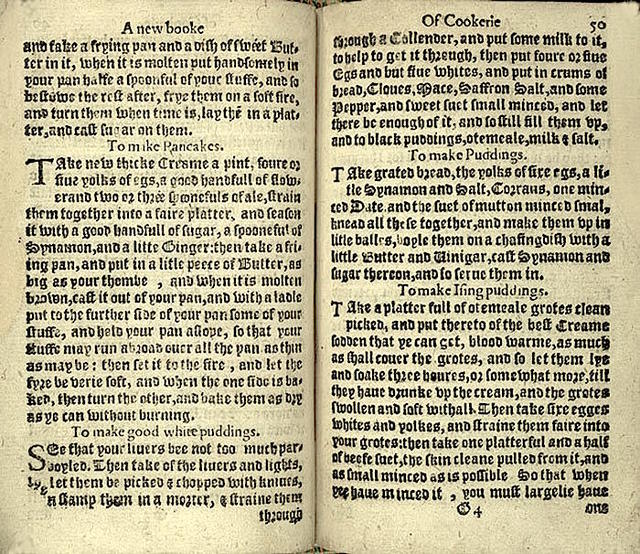 A new booke
and take a frying pan and a dish of sweet But-
ter in it, when it is molten put handsomely in
your pan halfe a spoonful of your stuffe, and so
bestowe the rest after, frye them on a soft fire,
and turn them when time is, lay thē in a plat-
ter, and cast sugar on them.
To make Pancakes.
TAke new thicke Creame a pint, foure or
fiue yolks of egs, a good handfull of flow-
er and two or three spoonefuls of ale, strain
them together into a faire platter, and season
it with a good handfull of sugar, a spooneful of
Synamon, and a litle Ginger: then take a fri-
ing pan, and put in a litle peece of Butter, as
big as your thombe, and when it is molten
brown, cast it out of your pan, and with a ladle
put to the further side of your pan some of your
stuffe, and hold your pan aslope, so that your
stuffe may run abroad ouer all the pan as thin
as may be: then set it to the fire, and let the
fyre be verie soft, and when the one side is ba-
ked, then turn the other, and bake them as dry
as ye can without burning.
To make good white puddings.
SEe that your liuers bee not too much par-
boyled. Then take of the liuers and lights,
let them be picked & chopped with kniues,
stamp them in a morter, & straine them
through
Of Cookerie
50
through a Collender, and put some milk to it,
to help to get it through, then put foure or fiue
Egs and but fiue whites, and put in crums of
bread, Cloues, Mace, Saffron Salt, and some
Pepper, and sweet suet small minced, and let
there be enough of it, and so still fill them vp,
and to black puddings, otemeale, milk & salt.
To make Puddings.
TAke grated bread, the yolks of sixe egs, a li-
tle Synamon and Salt, Corrans, one min-
ced Date, and the suet of mutton minced smal,
knead all these together, and make them vp in
litle balles, boyle them on a chafingdish with a
litle Butter and Uinigar, cast Synamon and
sugar thereon, and so serue them in.
To make Ising puddings.
TAke a platter full of otemeale grotes clean
picked, and put thereto of the best Creame
sodden that ye can get, blood warme, as much
as shall couer the grotes, and so let them lye
and soake three houres, or somewhat more, till
they haue drunke vp the cream, and the grotes
swollen and soft withall. Then take sixe egges
whites and yolkes, and straine them faire into
your grotes: then take one platterful and a half
of beefe suet, the skin cleane pulled from it, and
as small minced as is possible So that when
yee haue minced it, you must largelie haue
G 4
one